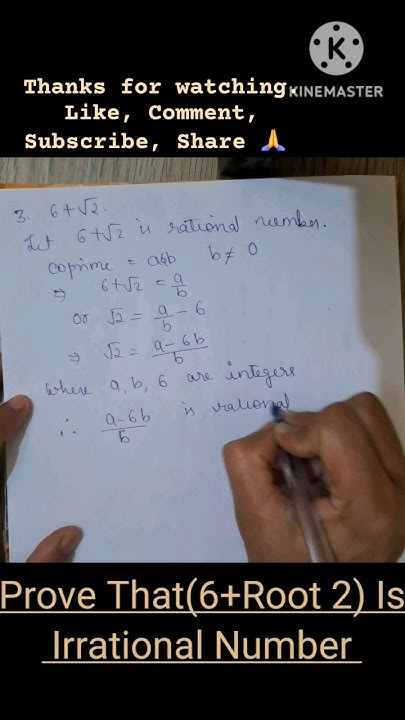 Thanks for watching.
Like, Comment,
Subscribe, Share 🙏
K
KINEMASTER
3. 6+√2.
Let 6+√2 is rational number.
coprime = a&b b ≠ 0
⇒ 6+√2 = a/b
or √2 = a/b - 6
⇒ √2 = a-6b/b
where a, b, 6 are integers
∴ a-6b/b is rational
Prove That(6+Root 2) Is
Irrational Number